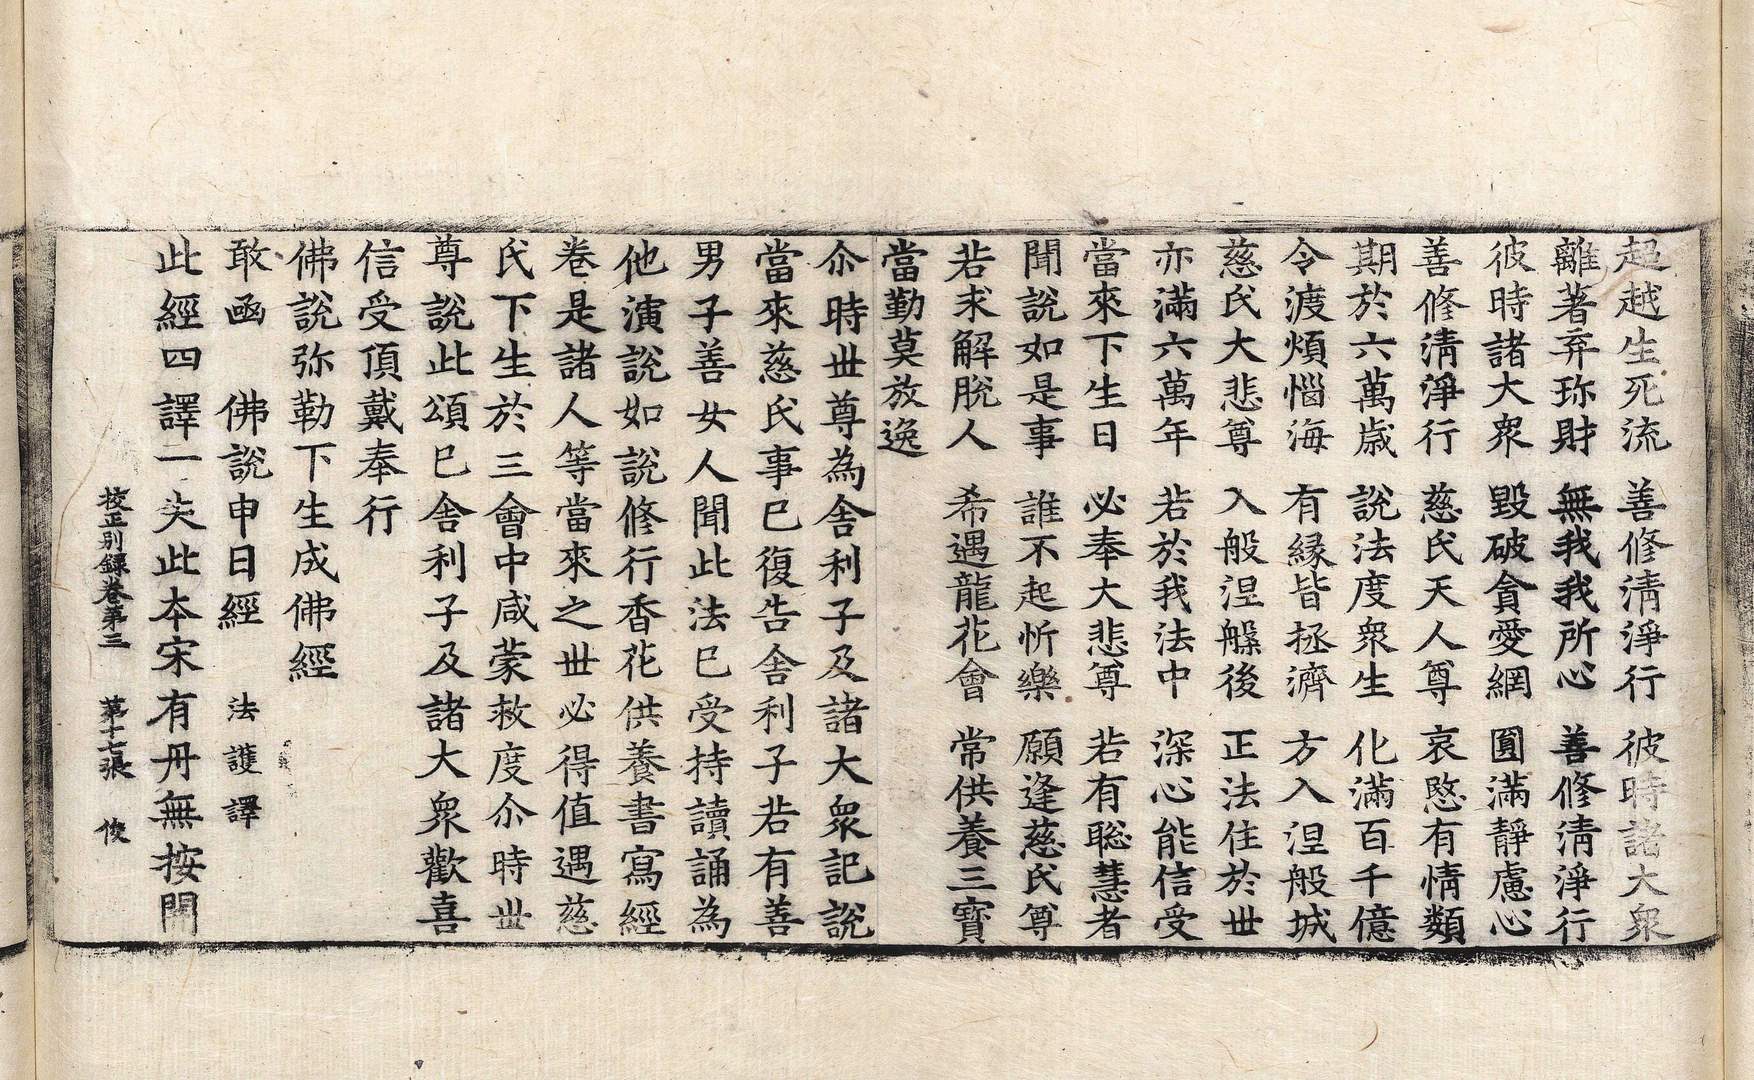 超越生死流 善修清淨行 彼時諸大衆
離著弃珎財 無我我所心 善修清淨行
彼時諸大衆 毀破貪愛網 圓滿靜慮心
善修清淨行 慈氏天人尊 哀愍有情類
期於六萬歲 說法度衆生 化滿百千億
令渡煩惱海 有緣皆拯濟 方入涅般城
慈氏大悲尊 入般涅槃後 正法住於丗
亦滿六萬年 若於我法中 深心能信受
當來下生日 必奉大悲尊 若有聡慧者
聞說如是事 誰不起忻樂 願逢慈氏尊
若求解脫人 希遇龍花會 常供養三寳
當勤莫放逸
尒時丗尊為舍利子及諸大衆記說
當來慈氏事已復告舍利子若有善
男子善女人聞此法已受持讀誦為
他演說如說修行香花供養書寫經
卷是諸人等當來之丗必得值遇慈
氏下生於三會中咸蒙救度尒時丗
尊說此頌已舍利子及諸大衆歡喜
信受頂戴奉行
佛說弥勒下生成佛經
敢函 佛說申日經 法護譯
此經四譯二失此本宋有丹無按開
校正別錄卷第三 第十七張 俊